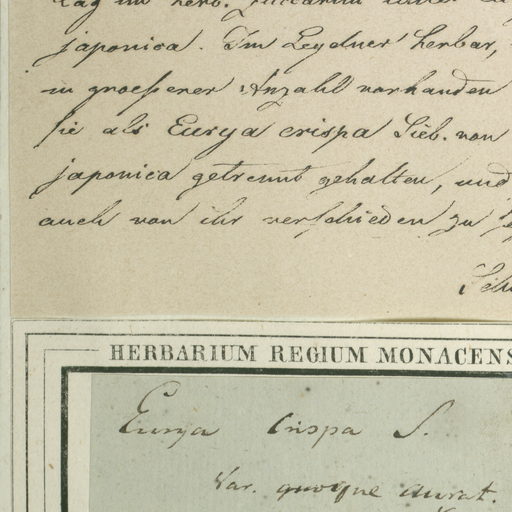 lag im Herb. Zuccarini unter Eu
japonica. Im Leydner Herbar,
in groeßerer Anzahl vorhanden
sie als Eurya crispa Sieb. von
japonica getrennt gehalten, und
auch von ihr verschieden zu se
Sch
HERBARIUM REGIUM MONACENS
Eurya crispa S.
Var. quoque aurat.